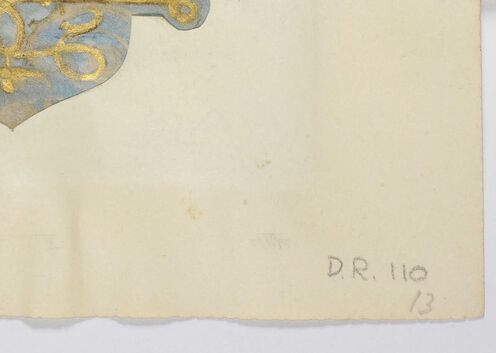 D.R. 110
13